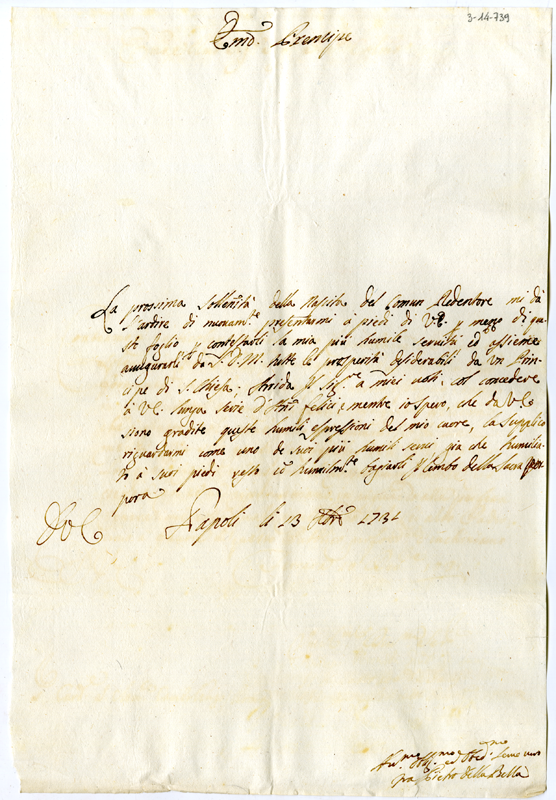 3-14-739
Emo. Prencipe
La prossima sollenità della Nascita del Comun Redentore mi dà
l'ardire di nuovamte presentarmi à piedi di V.E. p mezzo di que
st foglio, p contestarli la mia più humile servitù, ed assieme
augurarli da S.D.M. tutte le prosperità desiderabili da un Prin-
cipe di S. Chiesa; Arrida il Sigre a miei voti col concedere
à V.E. lunga serie d'Anni felici, e mentre io spero, che da V.E.
siano gradite queste humili espressioni del mio cuore, la supplico
riguardarmi come uno de suoi più humili servi, già che humilia-
to à suoi piedi resto co humilmte bagiarli il limbo della Sacra por
pora
Di V.E. Napoli li 13 Xbre 1731
Hummo ed Obbmo Servo vero
Fra Pietro della Bella